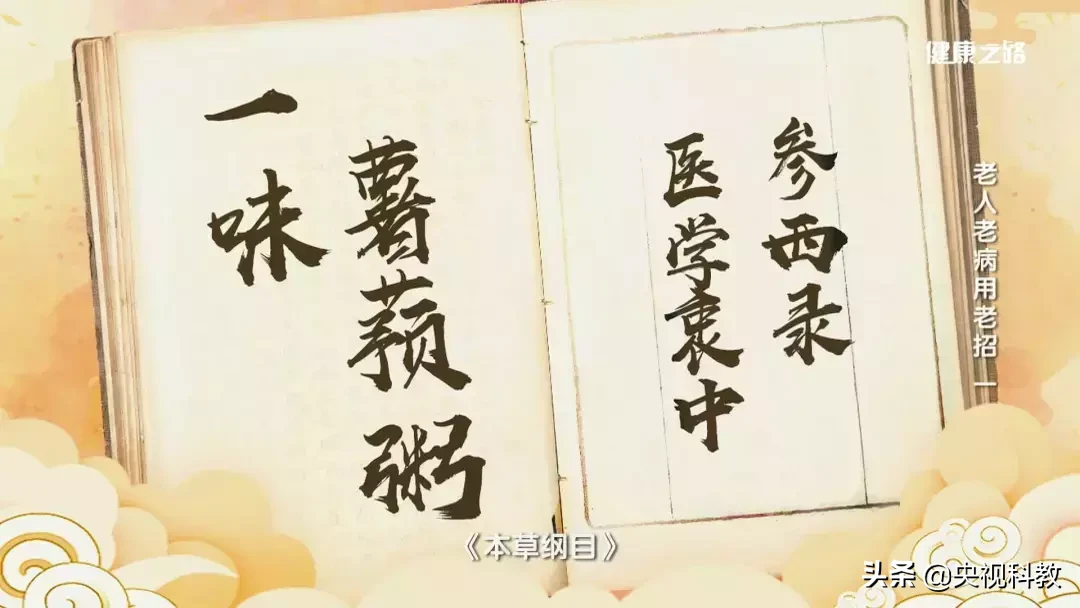 健康之路
老人老病用老招 一
医学衷中
参西录
一味
薯蓣粥
《本草纲目》
头条 @央视科教